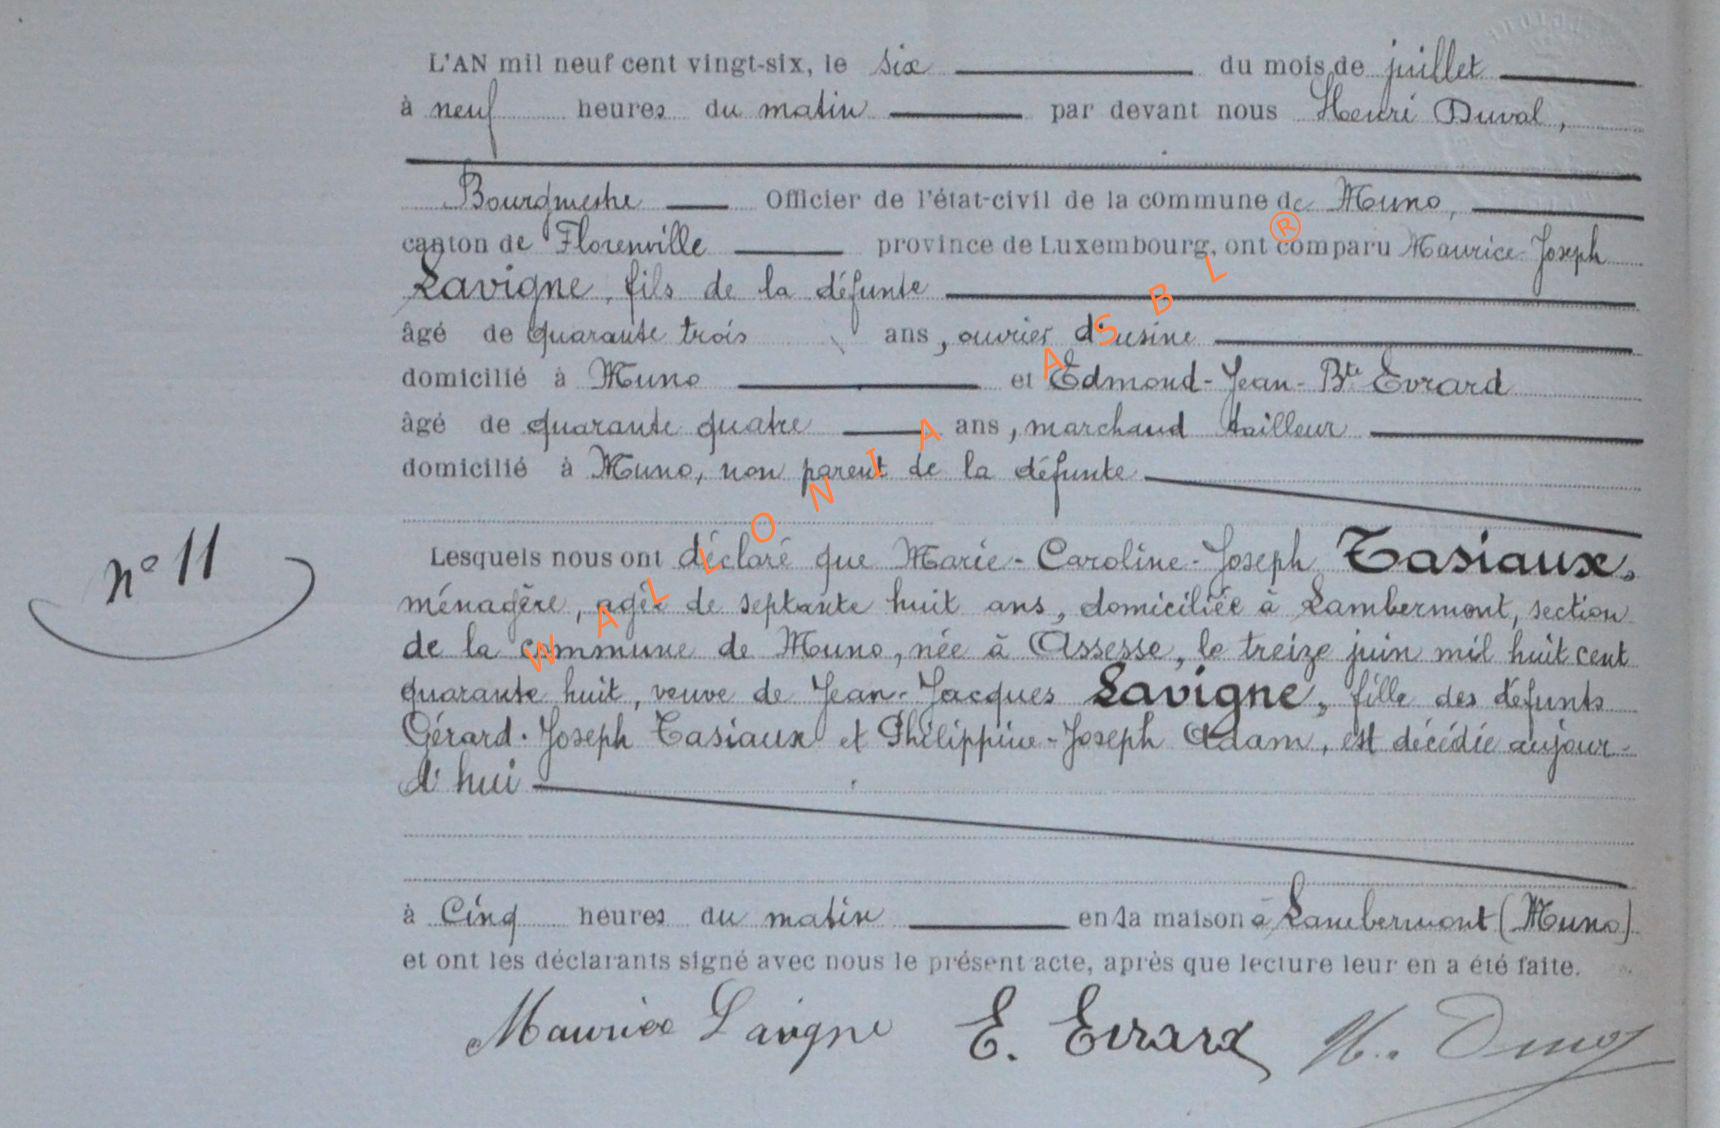 L'AN mil neuf cent vingt-six, le six du mois de juillet
à neuf heures du matin par devant nous Henri Duval,
Bourgmestre Officier de l'état-civil de la commune de Muno,
canton de Florenville province de Luxembourg, ont comparu Maurice-Joseph
Lavigne, fils de la défunte
âgé de quarante trois ans, ouvrier d'usine
domicilié à Muno et Edmond-Jean-Bte Evrard
âgé de quarante quatre ans, marchand tailleur
domicilié à Muno, non parent de la défunte
n° 11
Lesquels nous ont déclaré que Marie-Caroline-Joseph Tasiaux,
ménagère, agée de septante huit ans, domiciliée à Lambermont, section
de la commune de Muno, née à Assesse, le treize juin mil huit cent
quarante huit, veuve de Jean-Jacques Lavigne, fille des défunts
Gérard-Joseph Tasiaux et Philippine-Joseph Adam, est décédée aujour-
d'hui
à Cinq heures du matin en la maison à Lambermont (Muno)
et ont les déclarants signé avec nous le présent acte, après que lecture leur en a été faite.
Maurice Lavigne E. Evrard H. Duval
WALLONIA ASBL ®